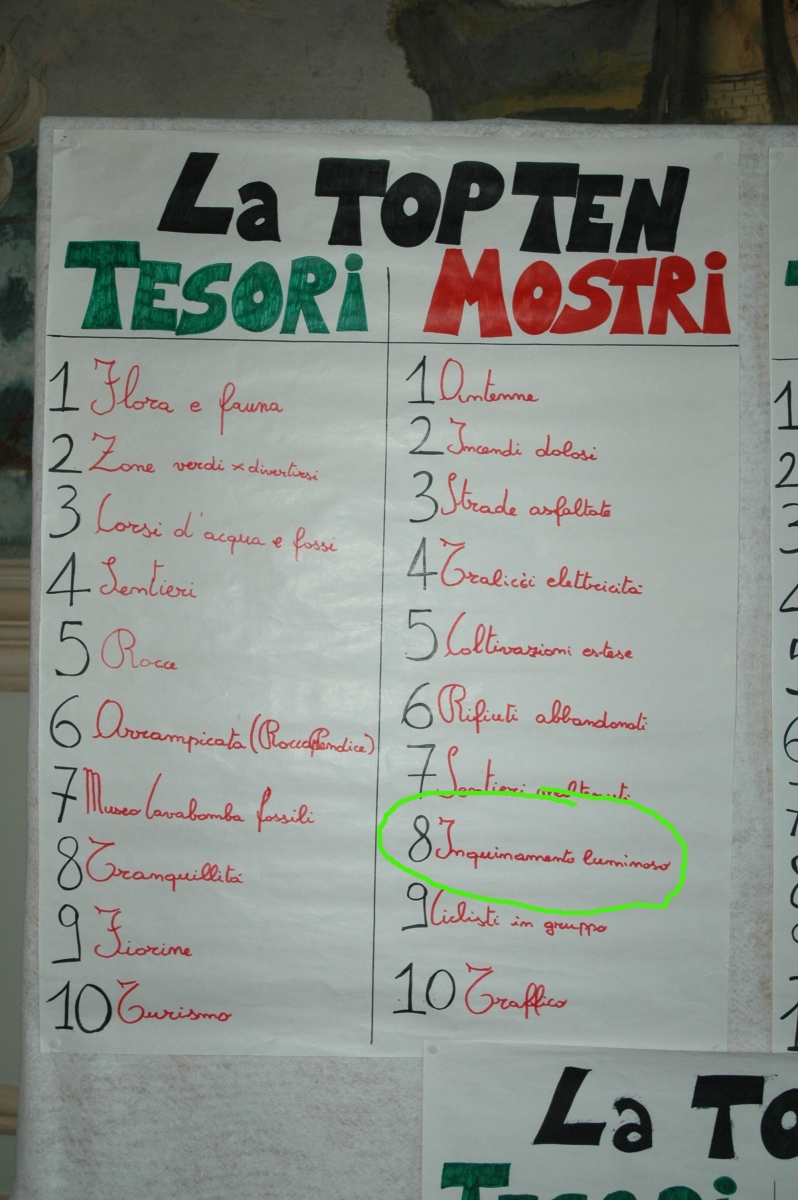 La TOP TEN
TESORi MOSTRi
1 Flora e fauna
2 Zone verdi x divertirsi
3 Corsi d'acqua e fossi
4 Sentieri
5 Rocce
6 Arrampicata (Rocca Pendice)
7 Museo Cavabomba fossili
8 Tranquillità
9 Fiorine
10 Turismo
1 Antenne
2 Incendi dolosi
3 Strade asfaltate
4 Tralicci elettricità
5 Coltivazioni estese
6 Rifiuti abbandonati
7 Sentieri maltenuti
8 Inquinamento luminoso
9 Ciclisti in gruppo
10 Traffico
1
2
3
4
5
6
7
8
9
1
La TO
TESORi